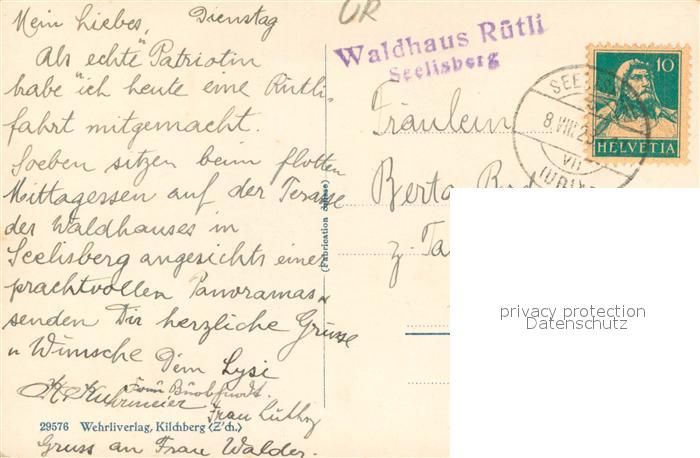 Mein Liebes, Dienstag
Als "echte" Patriotin
habe ich heute eine Rütli-
fahrt mitgemacht.
Soeben sitzen beim flotten
Mittagessen auf der Terasse
des Waldhauses in
Seelisberg angesichts eines
prachtvollen Panoramas u
senden Dir herzliche Grüsse
u Wünsche Dein Lysi
Frau
Frau Lüthy
29576 Wehrliverlag, Kilchberg (Z'ch.)
Gruss an Frau Walder.
(Fabrication Suisse)
UR
Waldhaus Rütli
Seelisberg
10
HELVETIA
8.VIII.2
VII
(URI)
Fräulein
Berta
z. Ta
privacy protection
Datenschutz